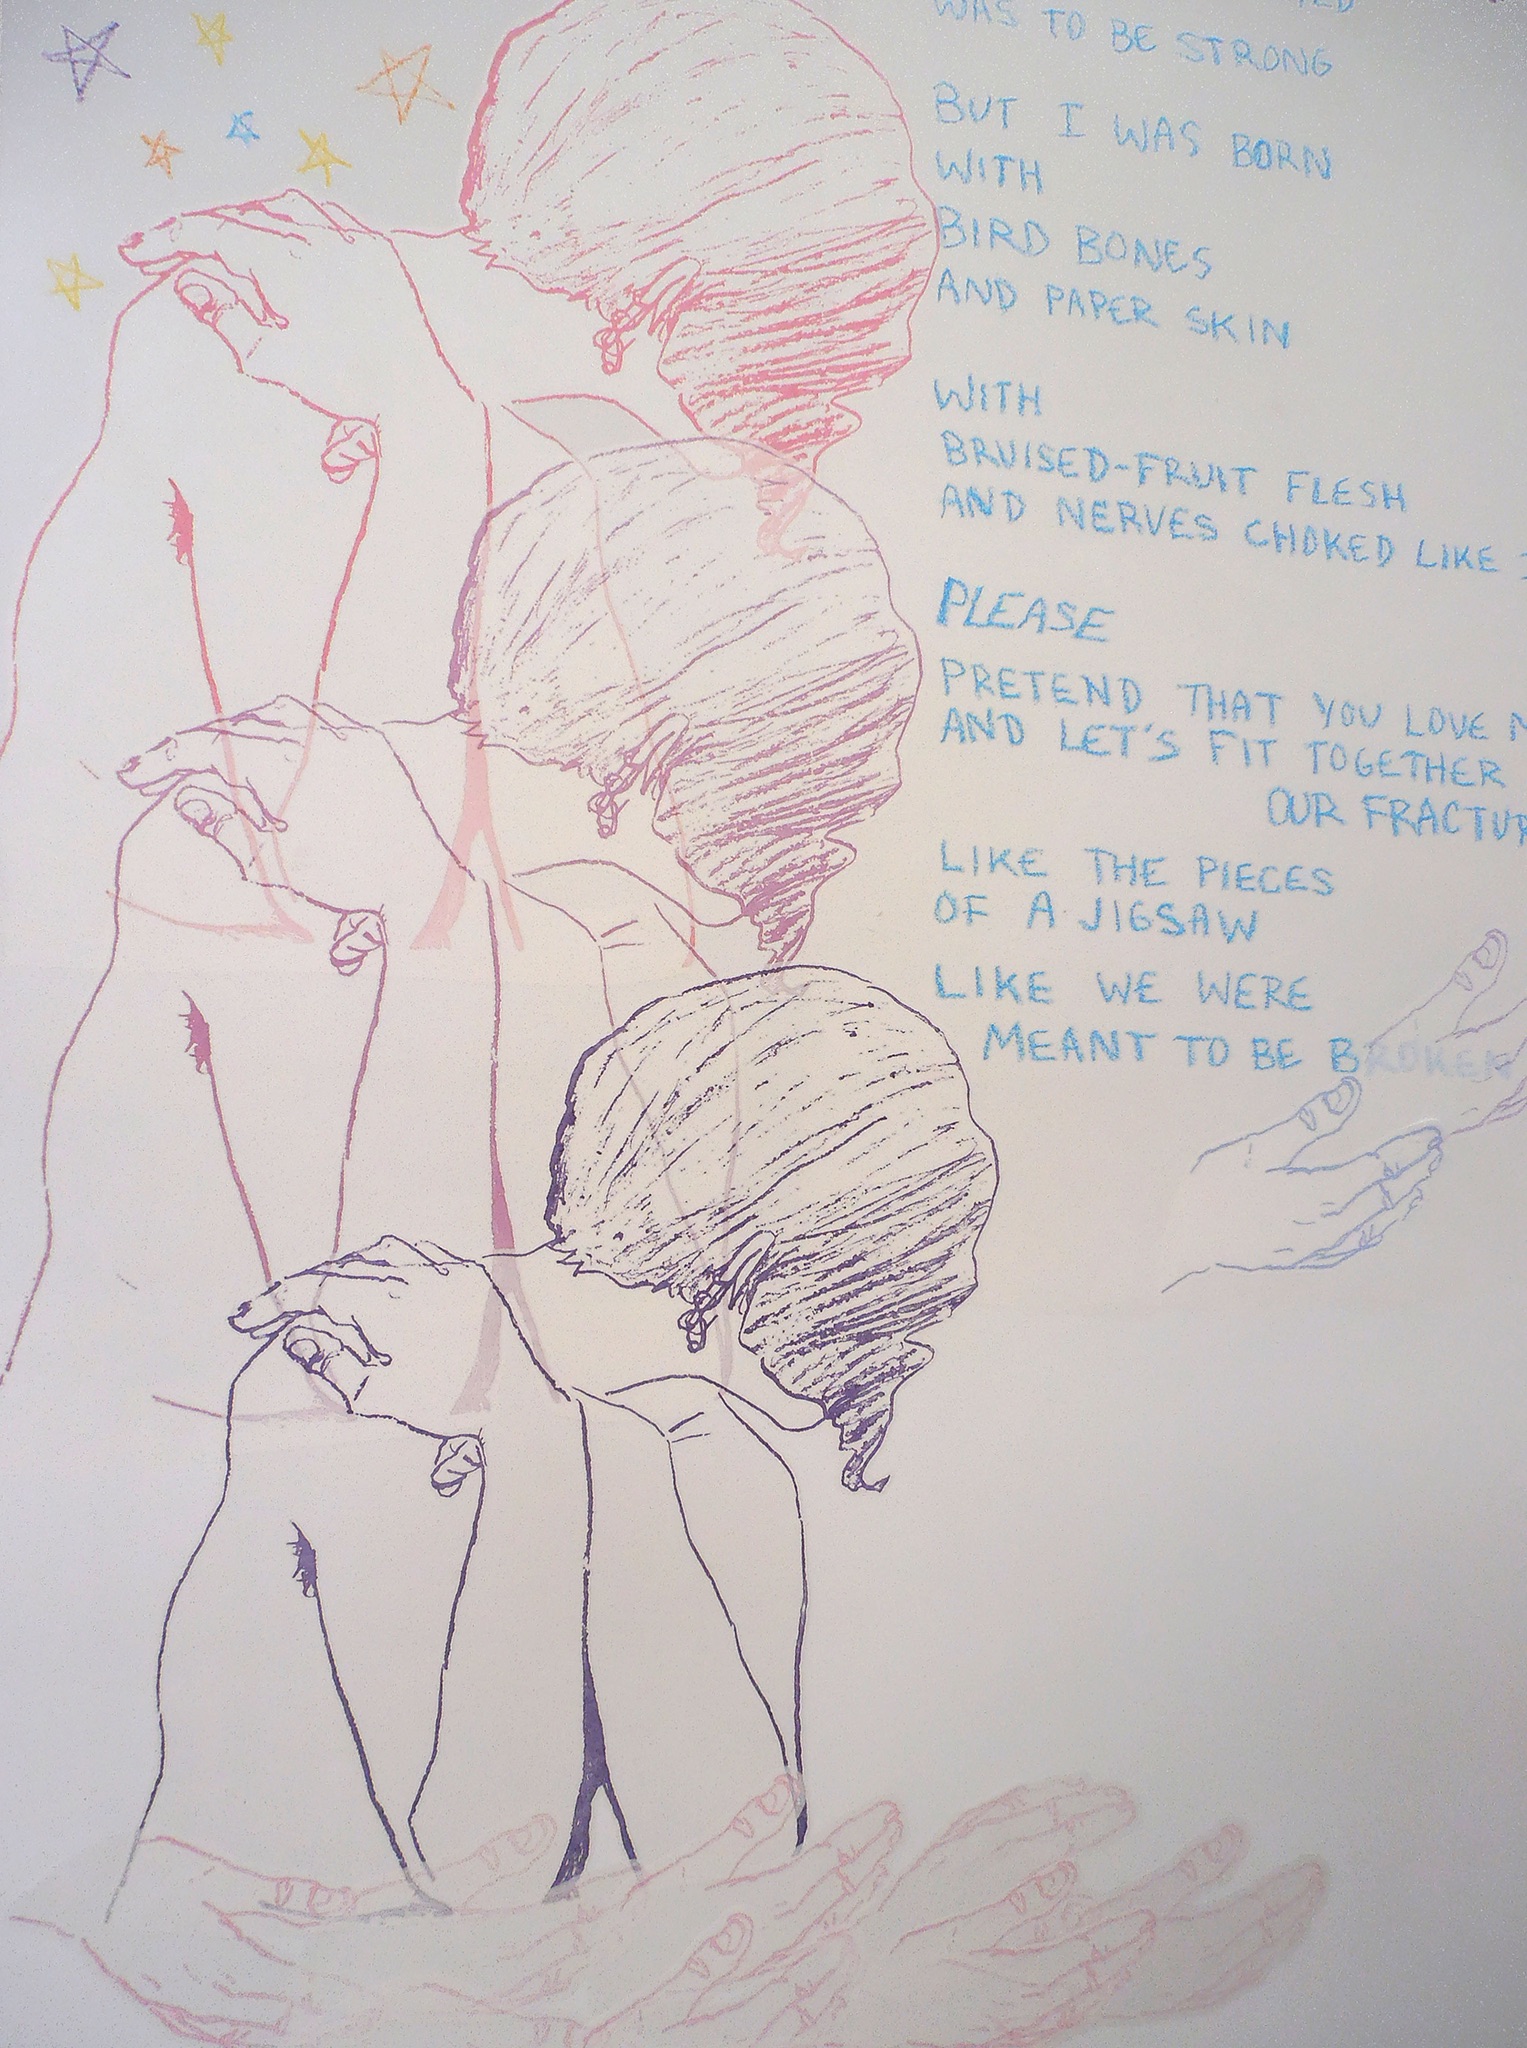 WAS TO BE STRONG
BUT I WAS BORN
WITH
BIRD BONES
AND PAPER SKIN
WITH
BRUISED-FRUIT FLESH
AND NERVES CHOKED LIKE
PLEASE
PRETEND THAT YOU LOVE
AND LET'S FIT TOGETHER
OUR FRACTUR
LIKE THE PIECES
OF A JIGSAW
LIKE WE WERE
MEANT TO BE BROKEN